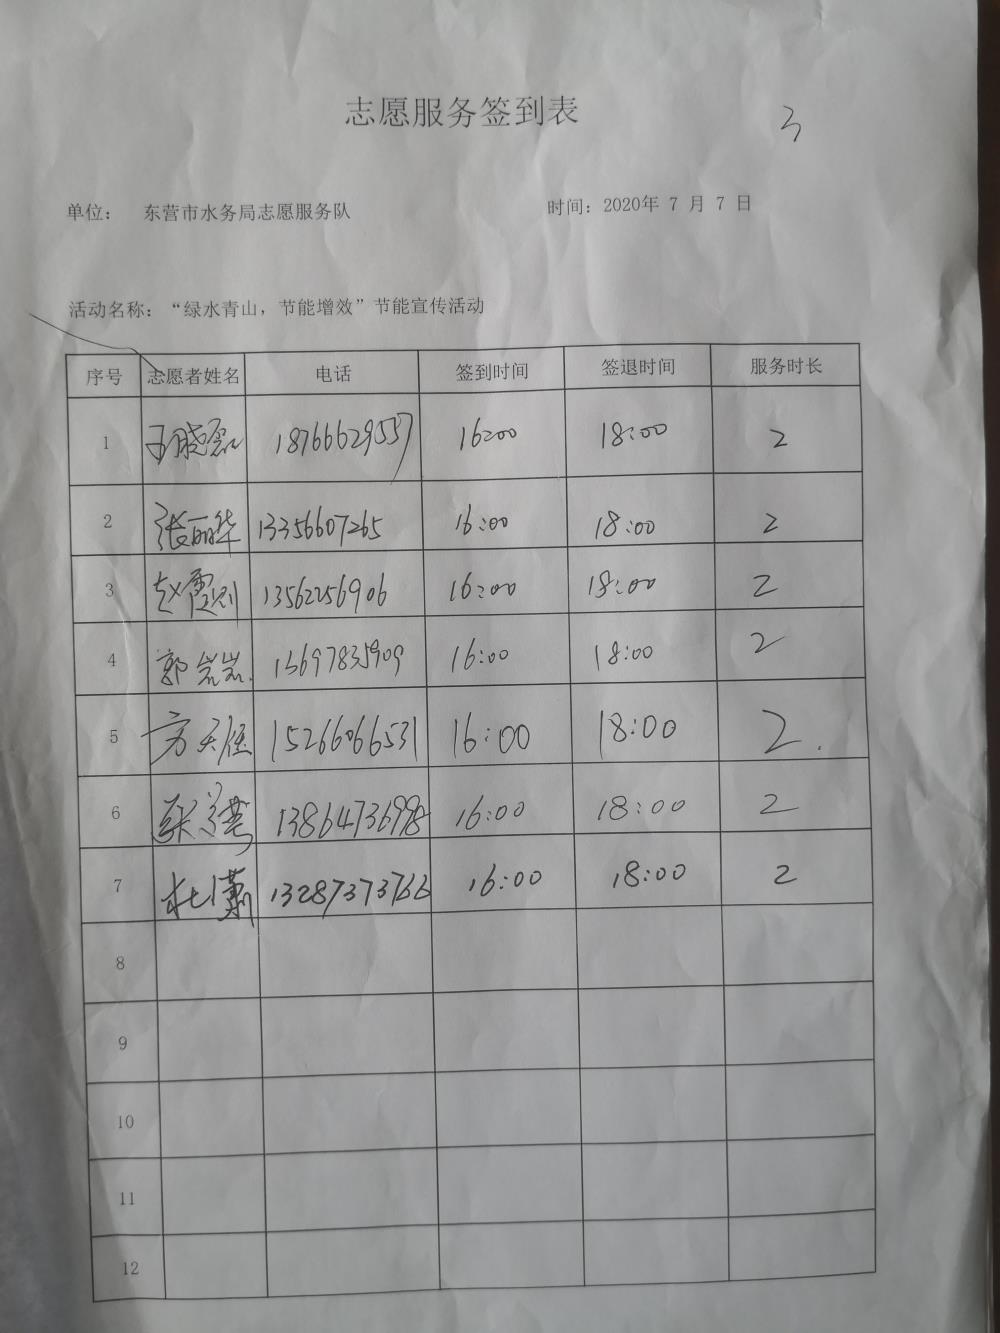 志愿服务签到表
3
单位： 东营市水务局志愿服务队 时间：2020年 7 月 7 日
活动名称：“绿水青山，节能增效”节能宣传活动
序号 志愿者姓名 电话 签到时间 签退时间 服务时长
1 18766629557 16:00 18:00 2
2 张丽华 13356607265 16:00 18:00 2
3 赵霞 13562256906 16:00 18:00 2
4 郭岩岩 13697835909 16:00 18:00 2
5 方天 15266066531 16:00 18:00 2.
6 13864736998 16:00 18:00 2
7 杜潇 13287373766 16:00 18:00 2
8
9
10
11
12